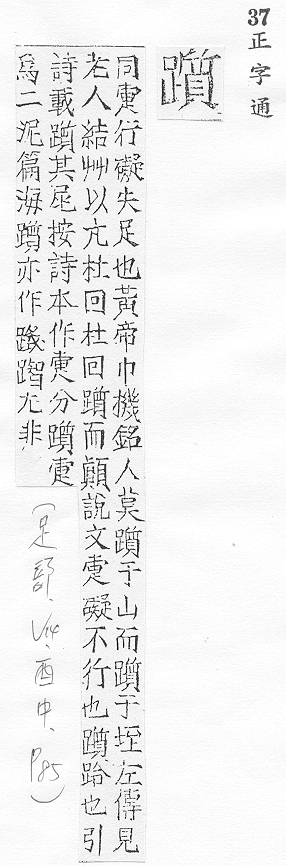 37正字通
躓
同疐行礙失足也黃帝巾機銘人莫躓于山而躓于垤左傳見
老人結艸以亢杜回杜回躓而顚說文疐礙不行也躓跲也引
詩載躓其尾按詩本作疐分躓疐
爲二泥篇海躓亦作尤非
(足部、V14、酉中、P85)